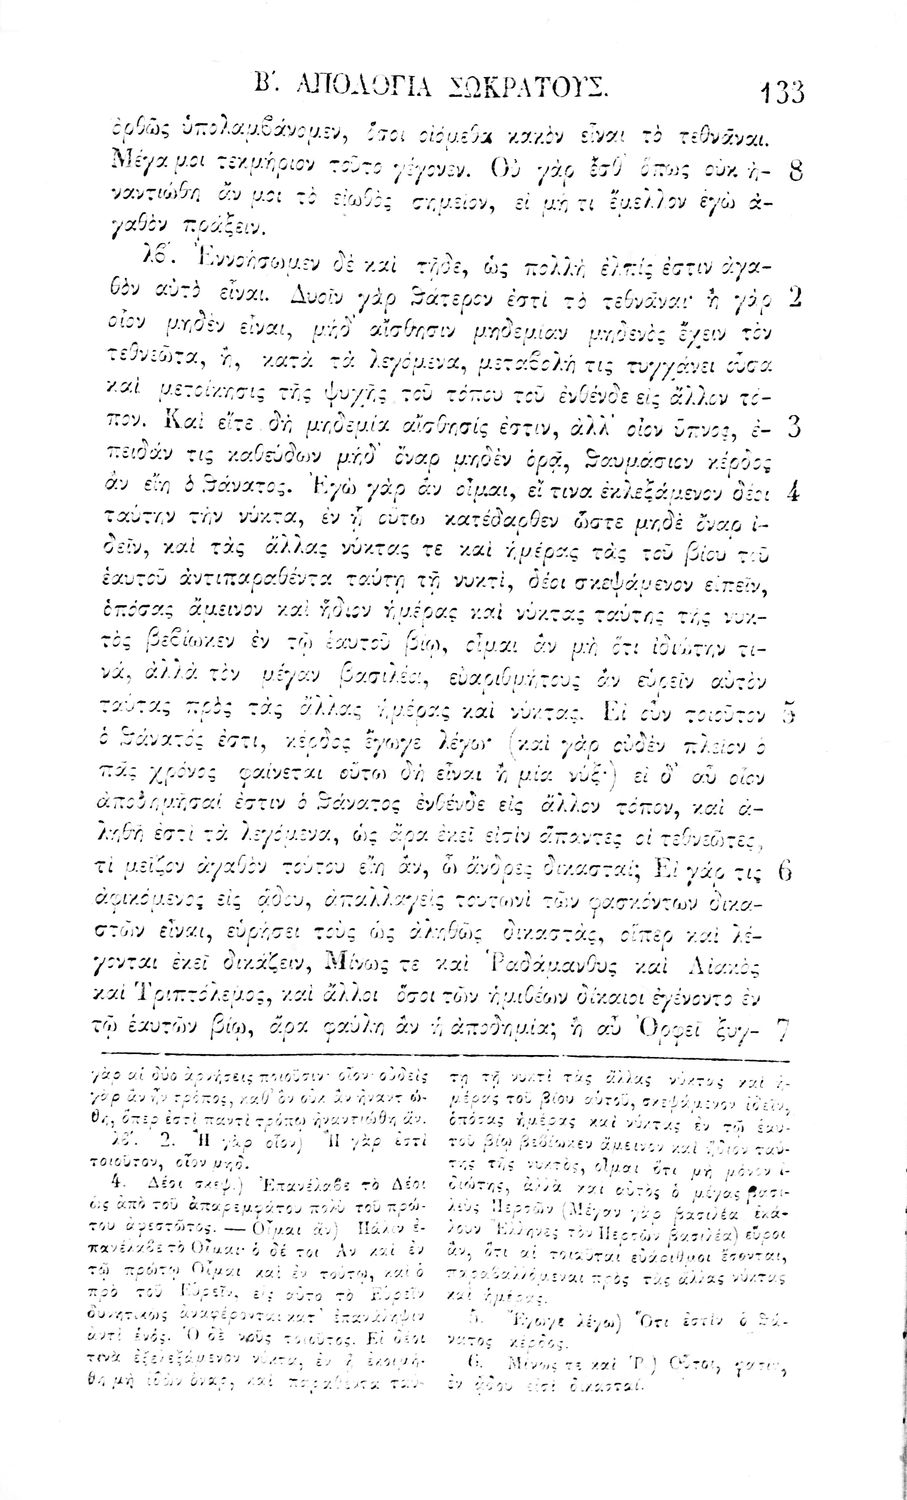 Β΄. ΑΠΟΛΟΓΙΑ ΣΩΚΡΑΤΟΥΣ. 133
ὀρθῶς ὑπολαμβάνομεν, ὅσοι οἰόμεθα κακὸν εἶναι τὸ τεθνᾶναι.
Μέγα μοι τεκμήριον τοῦτο γέγονεν. Οὐ γὰρ ἔσθ᾽ ὅπως οὐκ ἠ- 8
ναντιώθη ἄν μοι τὸ εἰωθὸς σημεῖον, εἰ μή τι ἔμελλον ἐγὼ ἀ-
γαθὸν πράξειν.
λβ΄. Ἐννοήσωμεν δὲ καὶ τῇδε, ὡς πολλὴ ἐλπίς ἐστιν ἀγα-
θὸν αὐτὸ εἶναι. Δυοῖν γὰρ θάτερον ἐστὶ τὸ τεθνᾶναι· ἢ γὰρ 2
οἷον μηδὲν εἶναι, μηδ᾽ αἴσθησιν μηδεμίαν μηδενὸς ἔχειν τὸν
τεθνεῶτα, ἢ, κατὰ τὰ λεγόμενα, μεταβολή τις τυγχάνει οὖσα
καὶ μετοίκησις τῆς ψυχῆς τοῦ τόπου τοῦ ἐνθένδε εἰς ἄλλον τό-
πον. Καὶ εἴτε δὴ μηδεμία αἴσθησίς ἐστιν, ἀλλ᾽ οἷον ὕπνος, ἐ- 3
πειδάν τις καθεύδων μηδ᾽ ὄναρ μηδὲν ὁρᾷ, θαυμάσιον κέρδος
ἂν εἴη ὁ θάνατος. Ἐγὼ γὰρ ἂν οἶμαι, εἴ τινα ἐκλεξάμενον δέοι 4
ταύτην τὴν νύκτα, ἐν ᾗ οὕτω κατέδαρθεν ὥστε μηδὲ ὄναρ ἰ-
δεῖν, καὶ τὰς ἄλλας νύκτας τε καὶ ἡμέρας τὰς τοῦ βίου τοῦ
ἑαυτοῦ ἀντιπαραθέντα ταύτῃ τῇ νυκτὶ, δέοι σκεψάμενον εἰπεῖν,
ὁπόσας ἄμεινον καὶ ἥδιον ἡμέρας καὶ νύκτας ταύτης τῆς νυκ-
τὸς βεβίωκεν ἐν τῷ ἑαυτοῦ βίῳ, οἶμαι ἂν μὴ ὅτι ἰδιώτην τι-
νὰ, ἀλλὰ τὸν μέγαν βασιλέα, εὐαριθμήτους ἂν εὑρεῖν αὐτὸν
ταύτας πρὸς τὰς ἄλλας ἡμέρας καὶ νύκτας. Εἰ οὖν τοιοῦτον 5
ὁ θάνατός ἐστι, κέρδος ἔγωγε λέγω· (καὶ γὰρ οὐδὲν πλείον ὁ
πᾶς χρόνος φαίνεται οὕτω δὴ εἶναι ἢ μία νύξ·) εἰ δ᾽ αὖ οἷον
ἀποδημῆσαί ἐστιν ὁ θάνατος ἐνθένδε εἰς ἄλλον τόπον, καὶ ἀ-
ληθῆ ἐστὶ τὰ λεγόμενα, ὡς ἄρα ἐκεῖ εἰσὶν ἅπαντες οἱ τεθνεῶτες,
τί μεῖζον ἀγαθὸν τούτου εἴη ἂν, ὦ ἄνδρες δικασταί; Εἰ γάρ τις 6
ἀφικόμενος εἰς ᾅδου, ἀπαλλαγεὶς τουτωνὶ τῶν φασκόντων δικα-
στῶν εἶναι, εὑρήσει τοὺς ὡς ἀληθῶς δικαστὰς, οἵπερ καὶ λέ-
γονται ἐκεῖ δικάζειν, Μίνως τε καὶ Ῥαδάμανθυς καὶ Αἰακὸς
καὶ Τριπτόλεμος, καὶ ἄλλοι ὅσοι τῶν ἡμιθέων δίκαιοι ἐγένοντο ἐν
τῷ ἑαυτῶν βίῳ, ἆρα φαύλη ἂν ἡ ἀποδημία; ἢ αὖ Ὀρφεῖ ξυγ- 7
γὰρ αἱ δύο ἀρνήσεις ποιοῦσιν· οἷον οὐδεὶς
γὰρ ἂν ἦν τρόπος, καθ᾽ ὃν οὐκ ἂν ἠναντιώ-
θη, ὅπερ ἐστὶ παντὶ τρόπῳ ἠναντιώθη ἄν.
λβ΄. 2. Ἢ γὰρ οἷον) Ἢ γὰρ ἐστὶ
τοιοῦτον, οἷον μηδ.
4. Δέοι σκεψ.) Ἐπανέλαβε τὸ Δέοι
ὡς ἀπὸ τοῦ ἀπαρεμφάτου πολὺ τοῦ πρώ-
του ἀφεστῶτος. — Οἶμαι ἂν) Πάλιν ἐ-
πανέλαβε τὸ Οἶμαι· ὁ δέ τοι Ἂν καὶ ἐν
τῷ πρώτῳ Οἶμαι καὶ ἐν τούτῳ, καὶ ὁ
πρὸ τοῦ Εὑρεῖν, εἰς αὐτὸ τὸ Εὑρεῖν
δυνητικῶς ἀναφέρονται κατ᾽ ἐπανάληψιν
ἀντὶ ἑνός. Ὁ δὲ νοῦς τοιοῦτος. Εἰ δέοι
τινὰ ἐξελεξάμενον νύκτα, ἐν ᾗ ἐκοιμή-
θη μὴ ἰδὼν ὄναρ, καὶ παραθέντα ταύ-
τῃ τῇ νυκτὶ τὰς ἄλλας νύκτας καὶ ἡ-
μέρας τοῦ βίου αὐτοῦ, σκεψάμενον ἰδεῖν,
ὁπόσας ἡμέρας καὶ νύκτας ἐν τῷ ἑαυ-
τοῦ βίῳ βεβίωκεν ἄμεινον καὶ ἥδιον ταύ-
της τῆς νυκτὸς, οἶμαι ὅτι μὴ μόνον ἰ-
διώτης, ἀλλὰ καὶ αὐτὸς ὁ μέγας βασι-
λεὺς Περσῶν (Μέγαν γὰρ βασιλέα ἐκά-
λουν Ἕλληνες τὸν Περσῶν βασιλέα) εὕροι
ἂν, ὅτι αἱ τοιαῦται εὐάριθμοι ἔσονται,
παραβαλλόμεναι πρὸς τὰς ἄλλας νύκτας
καὶ ἡμέρας.
5. Ἔγωγε λέγω) Ὅτι ἐστὶν ὁ θά-
νατος κέρδος.
6. Μίνως τε καὶ Ῥ.) Οὗτοι, φασιν,
ἐν ᾅδου εἰσὶ δικασταί.